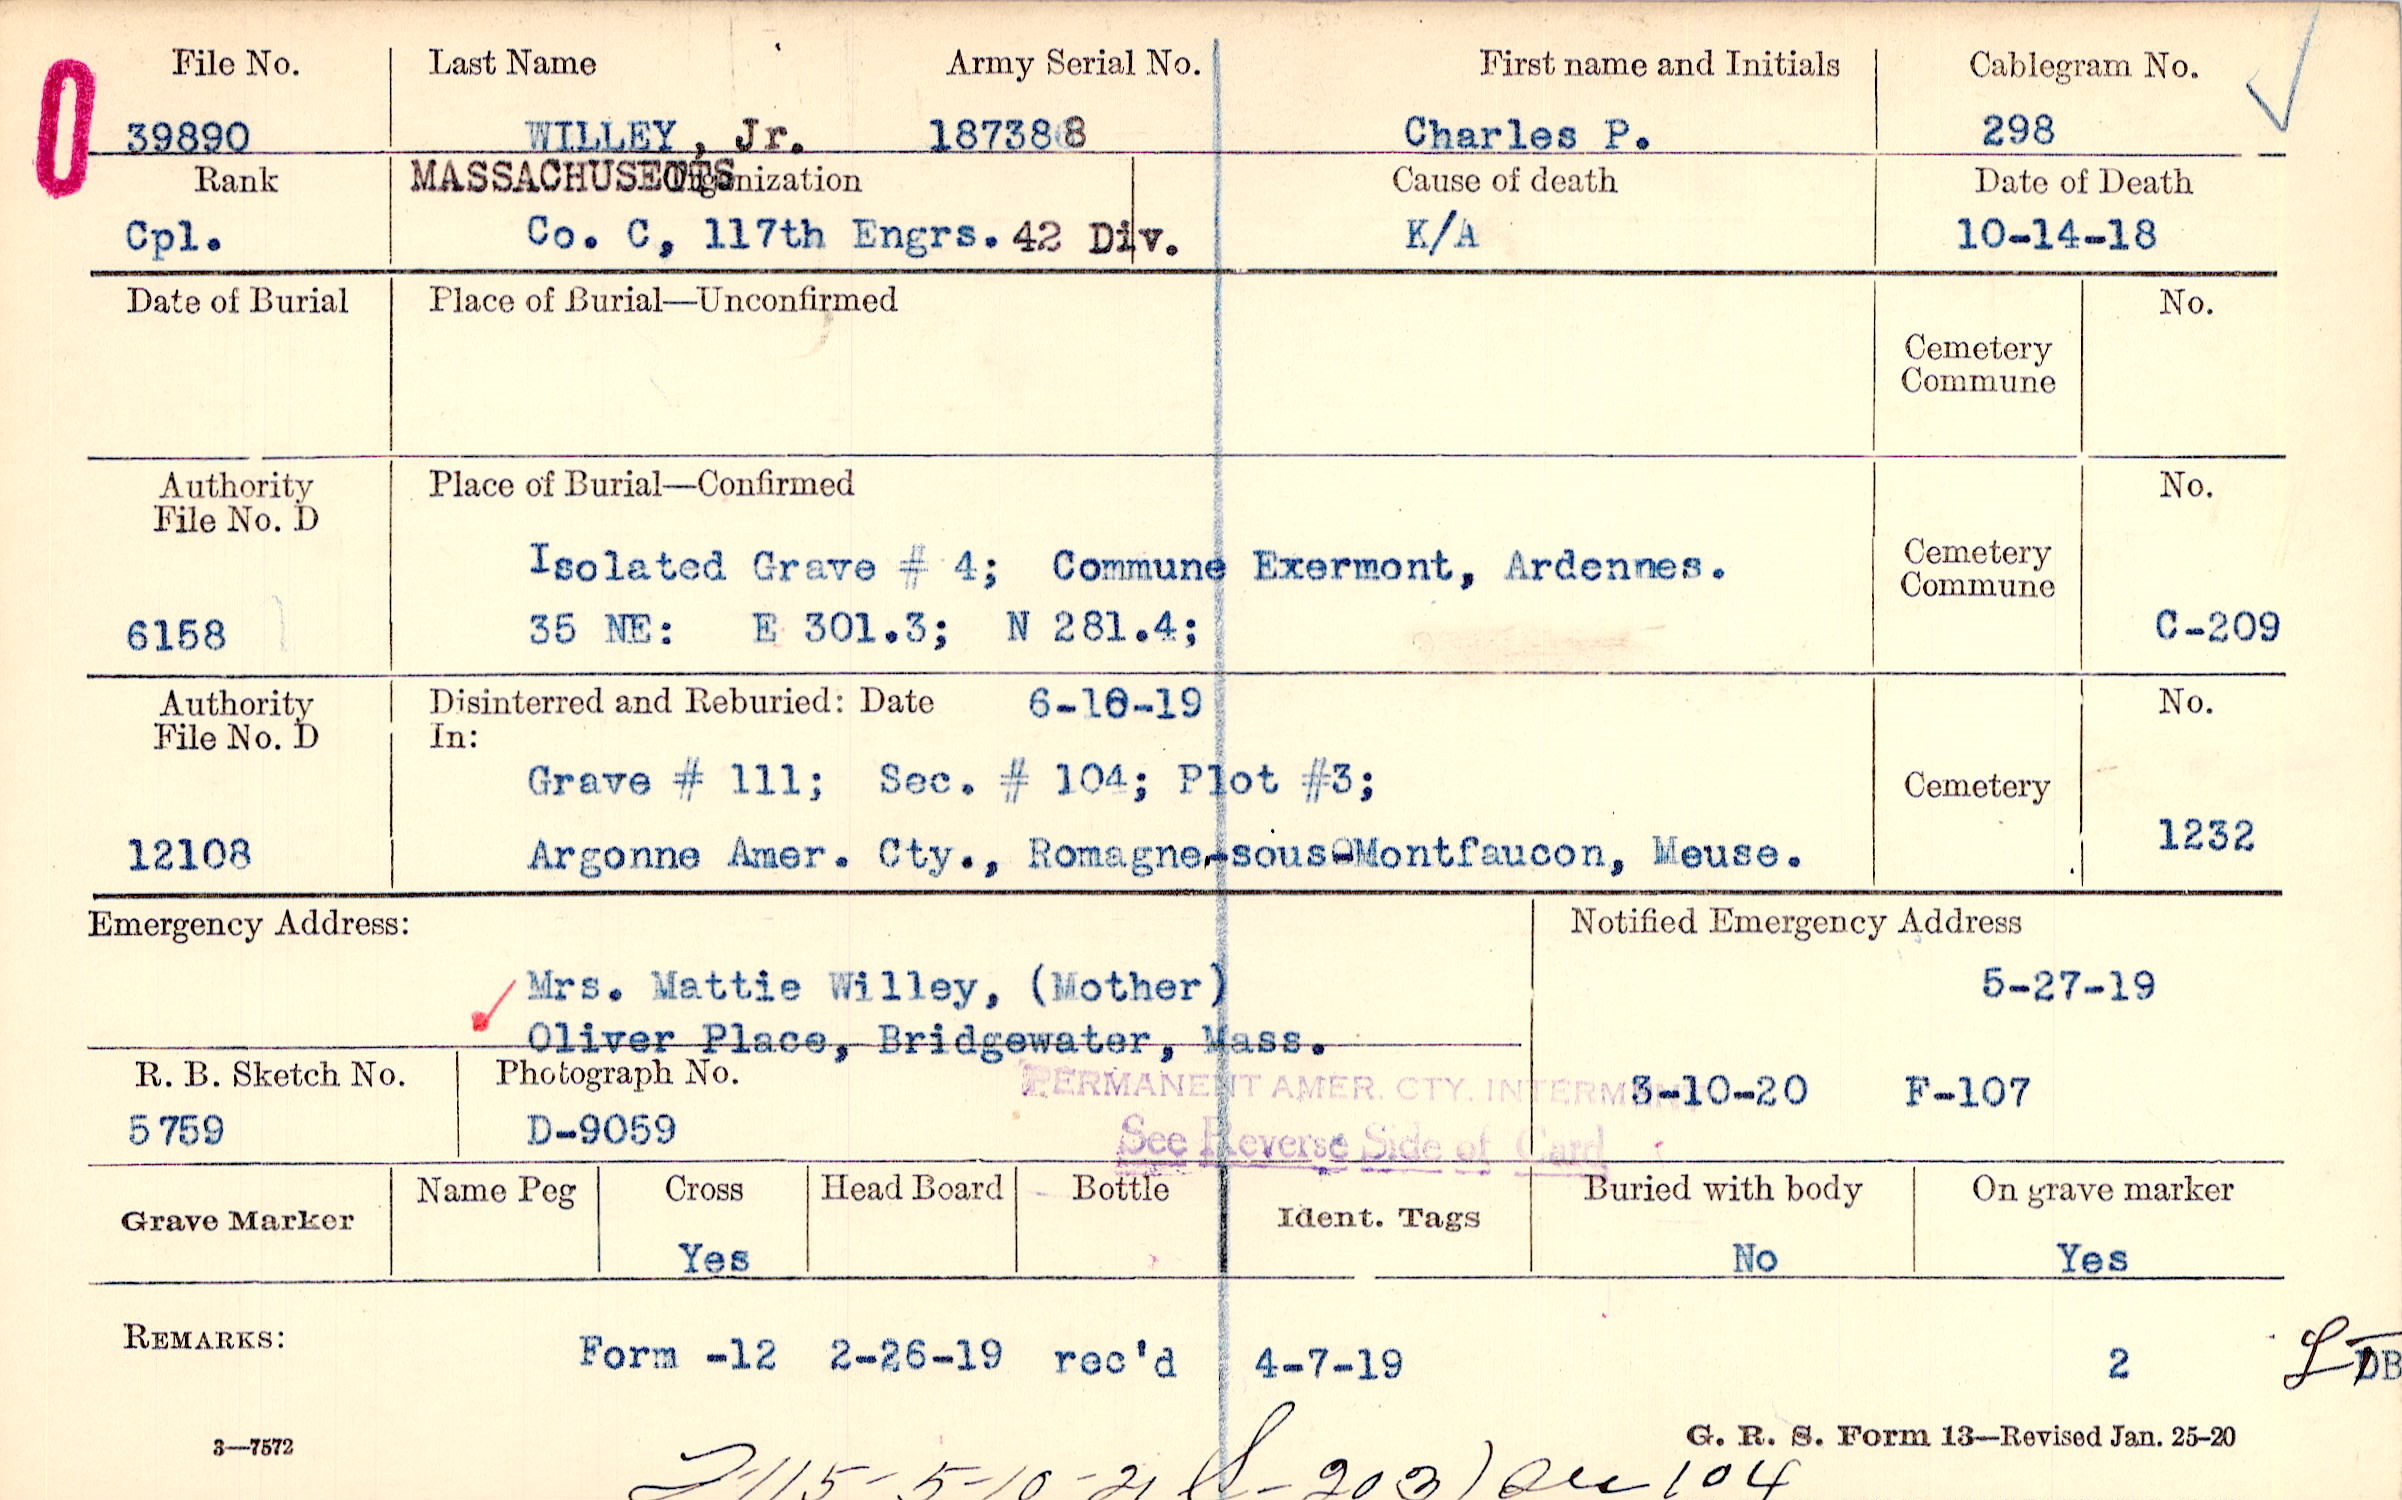 File No. Last Name Army Serial No. First name and Initials Cablegram No.
39890 WILLEY, Jr. 187388 Charles P. 298
Rank MASSACHUSETTS Organization Cause of death Date of Death
Cpl. Co. C, 117th Engrs. 42 Div. K/A 10-14-18
Date of Burial Place of Burial—Unconfirmed No.
Cemetery
Commune
Authority Place of Burial—Confirmed No.
File No. D
Isolated Grave # 4; Commune Exermont, Ardennes. Cemetery
Commune
6158 35 NE: E 301.3; N 281.4; C-209
Authority Disinterred and Reburied: Date 6-10-19 No.
File No. D In:
Grave # 111; Sec. # 104; Plot #3; Cemetery
12108 Argonne Amer. Cty., Romagne-sous-Montfaucon, Meuse. 1232
Emergency Address: Notified Emergency Address
Mrs. Mattie Willey, (Mother) 5-27-19
Oliver Place, Bridgewater, Mass.
R. B. Sketch No. Photograph No. PERMANENT AMER. CTY. INTERMENT 3-10-20 F-107
5759 D-9059 See Reverse Side of Card
Name Peg Cross Head Board Bottle Buried with body On grave marker
Grave Marker Ident. Tags
Yes No Yes
REMARKS: Form -12 2-26-19 rec'd 4-7-19 2 DB
3—7572 G. R. S. Form 13—Revised Jan. 25-20
5-10-21 203) 104